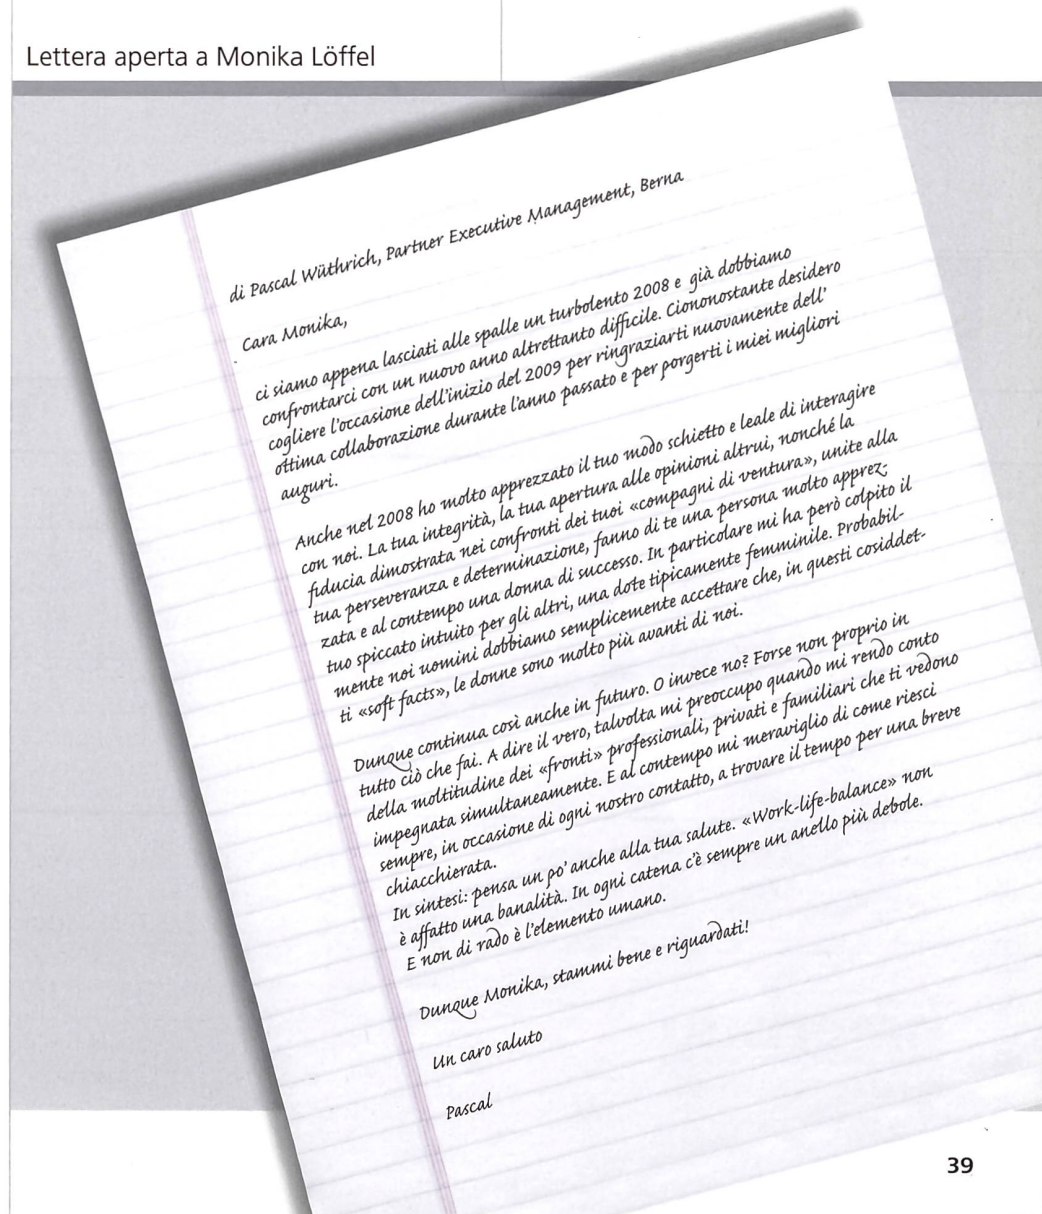 Lettera aperta a Monika Löffel
di Pascal Wüthrich, Partner Executive Management, Berna
Cara Monika,
ci siamo appena lasciati alle spalle un turbolento 2008 e già dobbiamo
confrontarci con un nuovo anno altrettanto difficile. Ciononostante desidero
cogliere l'occasione dell'inizio del 2009 per ringraziarti nuovamente dell'
ottima collaborazione durante l'anno passato e per porgerti i miei migliori
auguri.
Anche nel 2008 ho molto apprezzato il tuo modo schietto e leale di interagire
con noi. La tua integrità, la tua apertura alle opinioni altrui, nonché la
fiducia dimostrata nei confronti dei tuoi «compagni di ventura», unite alla
tua perseveranza e determinazione, fanno di te una persona molto apprez-
zata e al contempo una donna di successo. In particolare mi ha però colpito il
tuo spiccato intuito per gli altri, una dote tipicamente femminile. Probabil-
mente noi uomini dobbiamo semplicemente accettare che, in questi cosiddet-
ti «soft facts», le donne sono molto più avanti di noi.
Dunque continua così anche in futuro. O invece no? Forse non proprio in
tutto ciò che fai. A dire il vero, talvolta mi preoccupo quando mi rendo conto
della moltitudine dei «fronti» professionali, privati e familiari che ti vedono
impegnata simultaneamente. E al contempo mi meraviglio di come riesci
sempre, in occasione di ogni nostro contatto, a trovare il tempo per una breve
chiacchierata.
In sintesi: pensa un po' anche alla tua salute. «Work-life-balance» non
è affatto una banalità. In ogni catena c'è sempre un anello più debole.
E non di rado è l'elemento umano.
Dunque Monika, stammi bene e riguardati!
Un caro saluto
Pascal
39